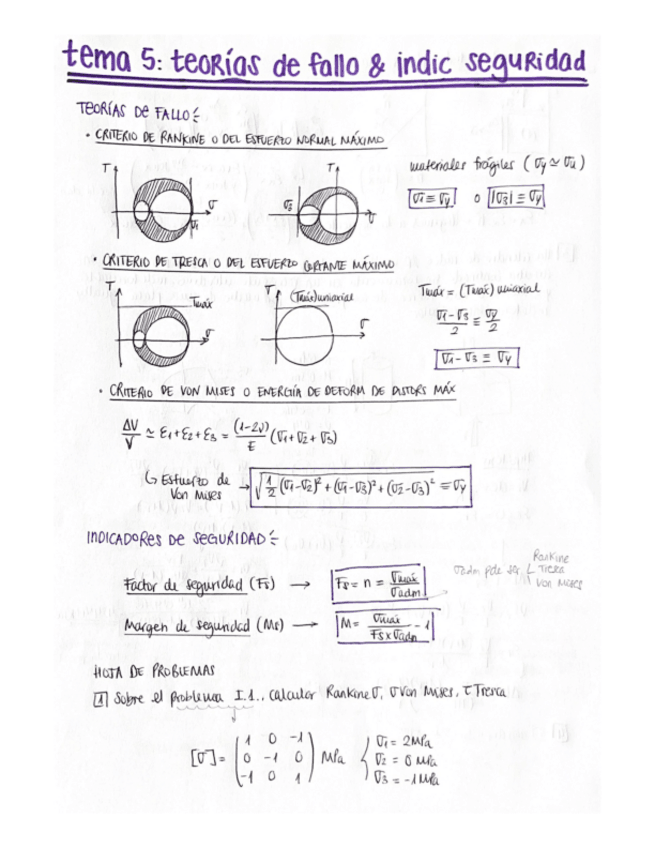 tema 5: teorías de fallo & indic seguridad
TEORÍAS DE FALLO:
· CRITERIO DE RANKINE O DEL ESFUERZO NORMAL MÁXIMO
T σ σ1
T σ3 σ
materiales frágiles (σy ≃ σu)
σ1 ≡ σy o |σ3| ≡ σy
· CRITERIO DE TRESCA O DEL ESFUERZO CORTANTE MÁXIMO
T Tmáx σ
T (Tmáx)uniaxial σ
Tmáx = (Tmáx) uniaxial
σ1-σ3/2 ≡ σy/2
σ1-σ3 ≡ σy
· CRITERIO DE VON MISES O ENERGÍA DE DEFORM DE DISTORS MÁX
ΔV/V ≃ ε1+ε2+ε3 = (1-2ν)/E (σ1+σ2+σ3)
↳ Esfuerzo de Von Mises → √1/2 (σ1-σ2)²+(σ1-σ3)²+(σ2-σ3)² ≡ σy
INDICADORES DE SEGURIDAD:
Factor de seguridad (Fs) → Fs = n = σmáx/σadm
σadm pde ser Rankine Tresca Von Mises
Margen de seguridad (Ms) → M = σmáx/Fs×σadm - 1
HOJA DE PROBLEMAS
1 Sobre el problema I.1., calcular Rankine σ, σ Von Mises, τ Tresca
[σ] = (1 0 -1
0 -1 0
-1 0 1) MPa
σ1 = 2MPa
σ2 = 0 MPa
σ3 = -1 MPa